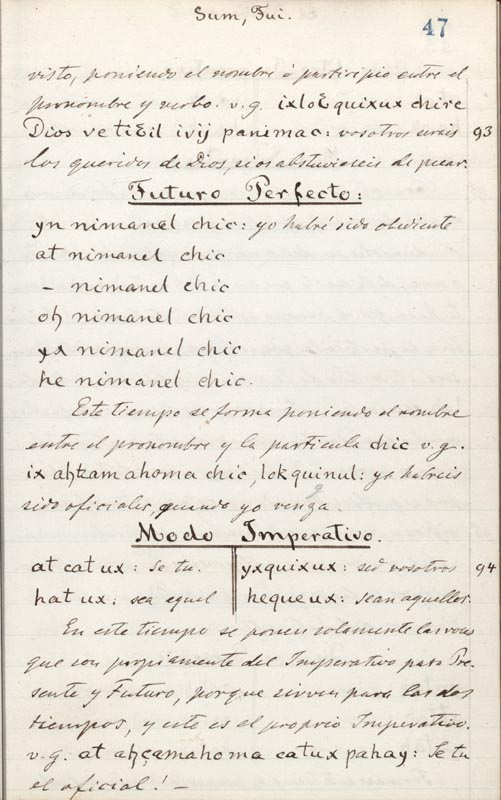 Sum, Fui.
47
visto, poniendo el nombre ó participio entre el
pronombre y verbo. v.g. ixloɛquixux chire
Dios ve tiɛil ivij panimac: vosotros erais 93
los queridos de Dios, si os abstuvieseis de pecar.
Futuro Perfecto:
yn nimanel chic: yo habré sido obediente
at nimanel chic
– nimanel chic
oh nimanel chic
yx nimanel chic
he nimanel chic.
Este tiempo se forma poniendo el nombre
entre el pronombre y la particula chic v.g.
ix ahtzamahoma chic, lokquinul: ya habreis
sido oficiales, quando yo venga.
Modo Imperativo.
at cat ux: se tu. yxquixux: sed vosotros 94
hat ux: sea aquel hequeux: sean aquellos.
En este tiempo se ponen solamente las voces
que son propiamente del Imperativo para Pre-
sente y Futuro, porque sirven para los dos
tiempos, y este es el proprio Imperativo.
v.g. at ahçamahoma catux pahay: Se tu
el oficial! –